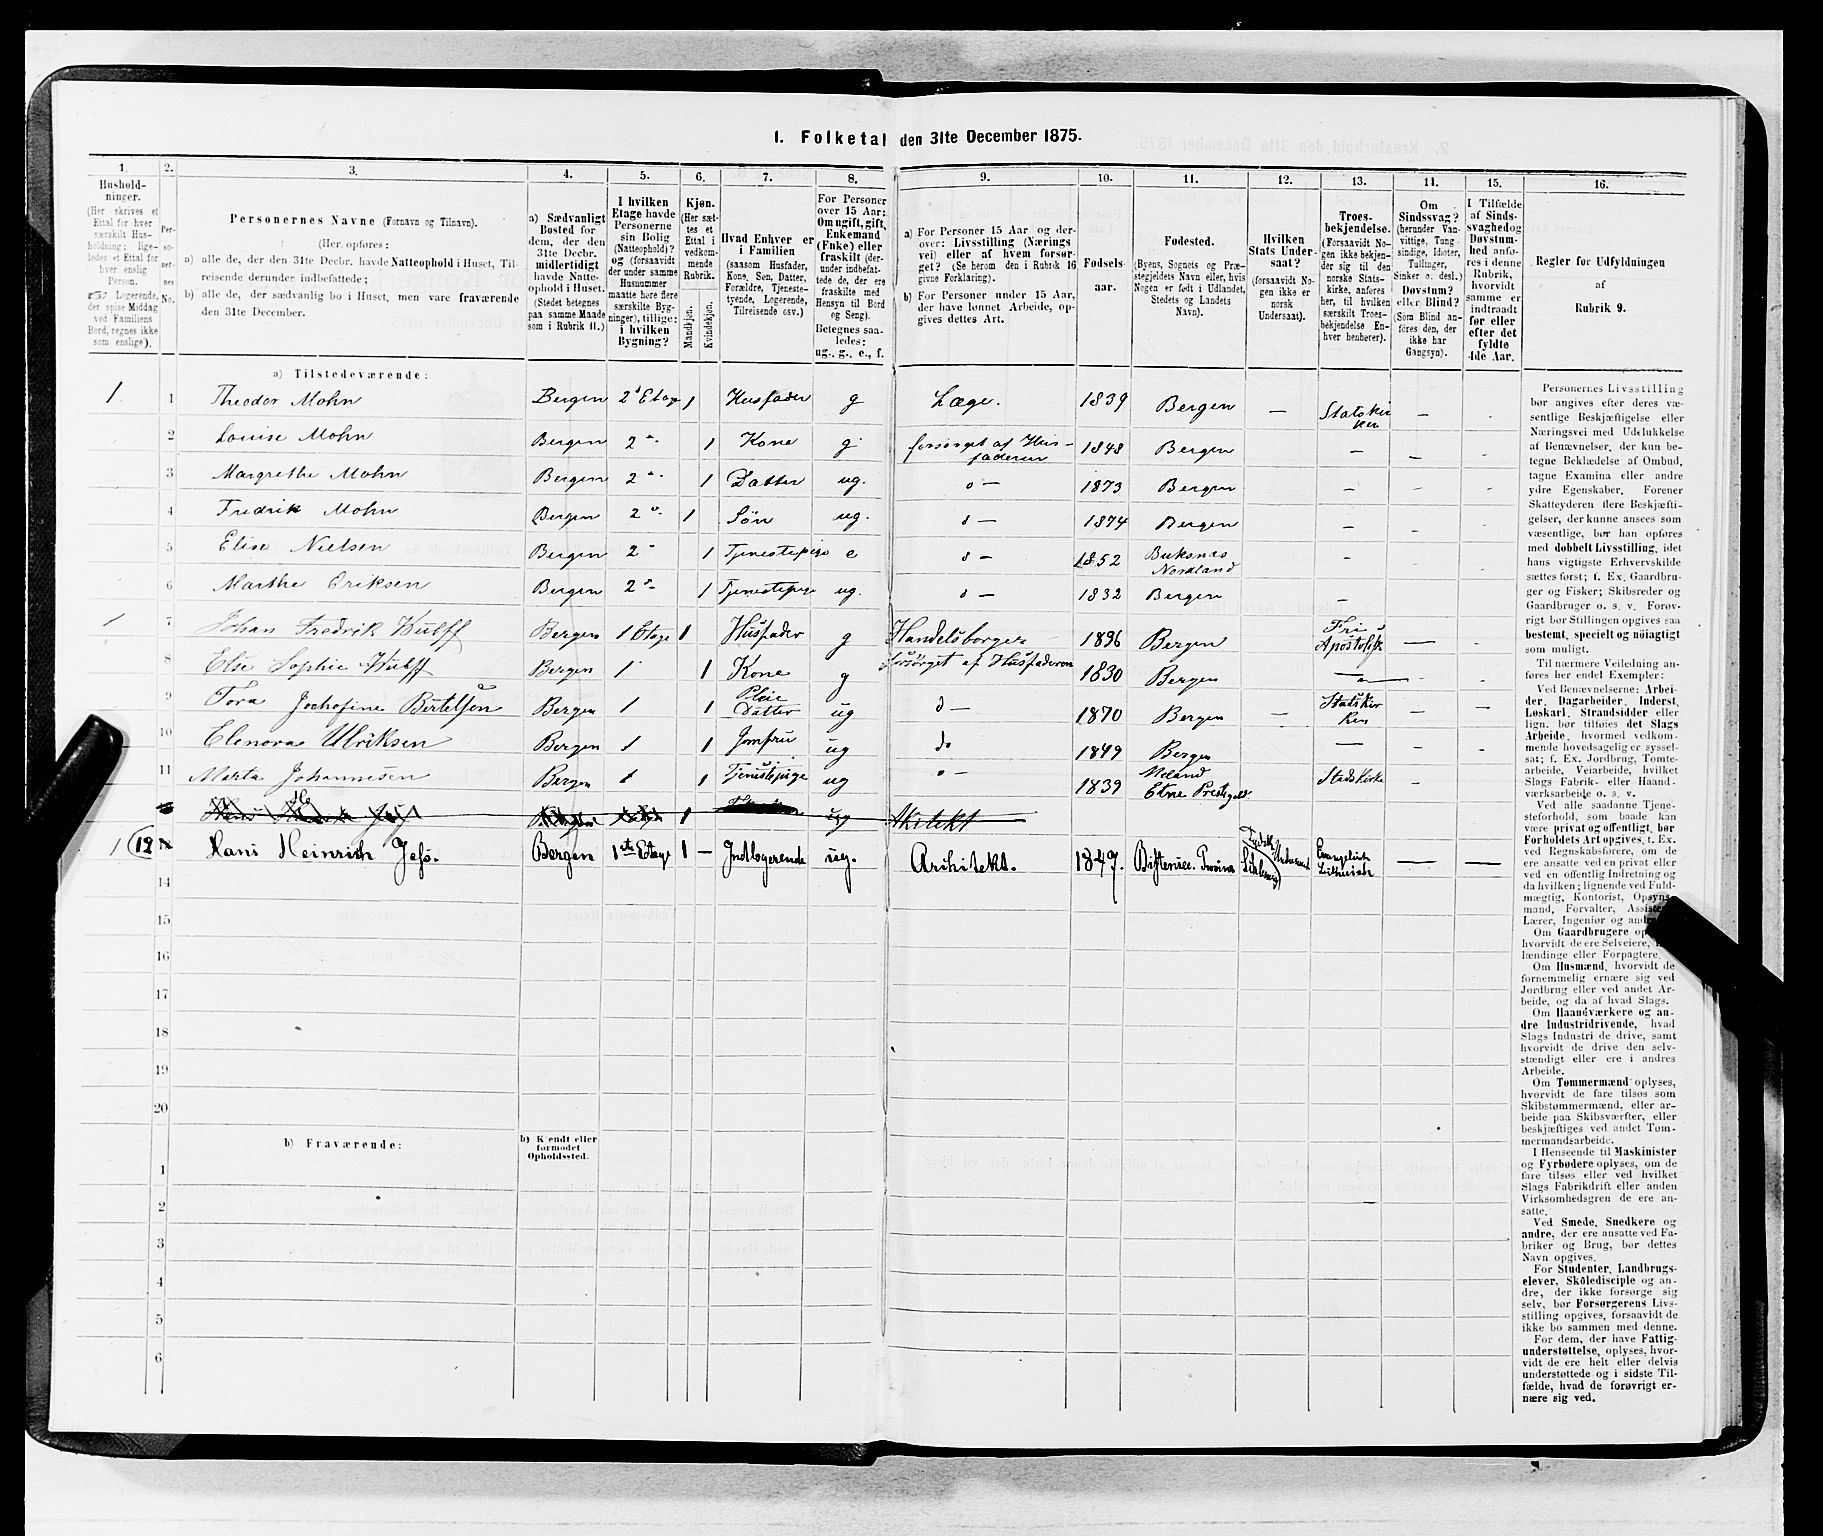 1. Folketal den 31te December 1875.
1. 2. 3. 4. 5. 6. 7. 8. 9. 10. 11. 12. 13. 14. 15. 16.
Hushold-
ninger.
(Her skrives et
Ettal for hver
særskilt Hus-
holdning; lige-
ledes et Ettal for
hver enslig
Person.
Logerende,
der spise Middag
ved Familiens
Bord, regnes ikke
som enslige).
Per-
so-
ner-
nes
No.
Personernes Navne (Fornavn og Tilnavn).
(Her opføres:
a) alle de, der den 31te Decbr. havde Natteophold i Huset, Til-
reisende derunder indbefattede;
b) alle de, der sædvanlig bo i Huset, men vare fraværende
den 31te December.
a) Sædvanligt
Bosted for
dem, der den
31te Decbr.
midlertidigt
havde Natte-
ophold i Huset.
(Stedet betegnes
paa samme Maade
som i Rubrik 11.)
I hvilken
Etage havde
Personerne
sin Bolig
(Natteophold)?
og (forsaavidt
der under samme
Husnummer
maatte høre flere
særskilte Byg-
ninger), tillige:
i hvilken
Bygning?
Kjøn.
(Her sæt-
tes et
Ettal i
vedkom-
mende
Rubrik.
Mandkjøn.
Kvindekjøn.
Hvad Enhver er
i Familien
(saasom Husfader,
Kone, Søn, Datter,
Forældre, Tjeneste-
tyende, Logerende,
Tilreisende osv.)
For Personer
over 15 Aar:
Om ugift, gift,
Enkemand
(Enke) eller
fraskilt (der-
under indbefat-
tede de, der ere
fraskilte med
Hensyn til Bord
og Seng).
Betegnes saa-
ledes:
ug., g., e., f.
a) For Personer 15 Aar og der-
over: Livsstilling (Nærings
vei) eller af hvem forsør-
get? (Se herom den i Rubrik 16
givne Forklaring).
b) For Personer under 15 Aar,
der have lønnet Arbeide, op-
gives dettes Art.
Fødsels-
aar.
Fødested.
(Byens, Sognets og Præ-
stegjeldets Navn eller, hvis
Nogen er født i Udlandet,
Stedets og Landets
Navn).
Hvilken
Stats Under-
saat?
(forsaavidt No-
gen ikke er
norsk
Undersaat).
Troes-
bekjendelse.
(Forsaavidt No-
gen ikke bekjen-
der sig til den
norske Stats-
kirke, anføres
her, til hvilken
særskilt Troes-
bekjendelse En-
hver henhører).
Om
Sindssvag?
(herunder Van-
vittige, Tung-
sindige, Idioter,
Tullinger,
Sinker o. desl.)
Døvstum?
eller Blind?
(Som Blind an-
føres den, der
ikke har
Gangsyn).
I Tilfælde
af Sinds-
svaghed og
Døvstum-
hed anfø-
res i denne
Rubrik,
hvorvidt
samme er
indtraadt
før eller
efter det
fyldte
4de Aar.
Regler for Udfyldningen
af
Rubrik 9.
a) Tilstedeværende:
1 1 Theodor Mohn Bergen 2d Etage 1 Husfader g Læge. 1839 Bergen — Statskir
ken —
2 Louise Mohn Bergen 2 " 1 Kone g forsørget af Hus-
faderen 1848 Bergen — — -
3 Margrethe Mohn Bergen 2 " 1 Datter ug. " — 1873 Bergen — — -
4 Fredrik Mohn Bergen 2 " 1 Søn ug. " — 1874 Bergen — —
5 Elise Nielsen Bergen 2 " 1 Tjenestepige e " — 1852 Buksnæs
Nordland -
6 Marthe Eriksen Bergen 2 " 1 Tjenestepige ug. " — 1832 Bergen —
1 7 Johan Fredrik Bergen 1 Etage 1 Husfader g Handelsborger 1836 Bergen Fri
Apostolisk — -
8 Else Sophie Bergen 1 1 Kone g forsørget af Husfaderen 1830 Bergen — " —
9 Tora Josefine Bertelsen Bergen 1 1 Pleie
Datter ug d — 1870 Bergen — Statskir
ken — —
10 Elenora Ulriksen Bergen 1 1 Jomfru ug do 1849 Bergen — — -
11 Marta Johannesen Bergen 1 1 Tjenestepige ug " — 1839
Etne Prestegeld Statskirke —
1 ug Akitekt
1 12 Hans Heinrich Jeß. Bergen 1ste Etage 1 — Indlogerende ug. Arkitekt. 1847. Tydsk Evangelisk
Luthersk — —
14
15
16
17
18
19
20
b) Fraværende:
b) Kjendt eller
formodet
Opholdssted.
1
2
3
4
5
6
Personernes Livsstilling
bør angives efter deres væ-
sentlige Beskjæftigelse eller
Næringsvei med Udelukkelse
af Benævnelser, der kun be-
tegne Beklædelse af Ombud,
tagne Examina eller andre
ydre Egenskaber. Forener
Skatteyderen flere Beskjæfti-
gelser, der kunne ansees som
væsentlige, bør han opføres
med dobbelt Livsstilling, idet
hans vigtigste Erhvervskilde
sættes først; f. Ex. Gaardbru-
ger og Fisker; Skibsreder og
Gaardbruger o. s. v. Forøv-
rigt bør Stillingen opgives saa
bestemt, specielt og nøiagtigt
som muligt.
Til nærmere Veiledning an-
føres her endel Exempler:
Ved Benævnelserne: Arbei-
der, Dagarbeider, Inderst,
Løskarl, Strandsidder eller
lign. bør tilføies det Slags
Arbeide, hvormed vedkom-
mende hovedsagelig er syssel-
sat; f. Ex. Jordbrug, Tomte-
arbeide, Veiarbeide, hvilket
Slags Fabrik- eller Haand-
værksarbeide o. s. v.
Ved alle saadanne Tjene-
steforhold, som baade kan
være privat og offentligt, bør
Forholdets Art opgives, t. Ex.
ved Regnskabsførere, om de
ere ansatte ved en privat eller
ved en offentlig Indretning og
da hvilken; lignende ved Fuld-
mægtig, Kontorist, Opsyns-
mand, Forvalter,
Lærer, Ingeniør og
Om Gaardbrugere
hvorvidt de ere Selveiere,
lændinge eller Forpagtere.
Om Husmænd, hvorvidt de
fornemmelig ernære sig ved
Jordbrug eller ved andet Ar-
beide, og da af hvad Slags.
Om Haandværkere og an-
dre Industridrivende, hvad
Slags Industri de drive, samt
hvorvidt de drive den selv-
stændigt eller ere i andres
Arbeide.
Om Tømmermænd oplyses,
hvorvidt de fare tilsøs som
Skibstømmermænd, eller ar-
beide paa Skibsværfter, eller
beskjæftiges ved andet Tøm-
mermandsarbeide.
I Henseende til Maskinister
og Fyrbødere oplyses, om de
fare tilsøs eller ved hvilket
Slags Fabrikdrift eller anden
Virksomhedsgren de ere an-
satte.
Ved Smede, Snedkere og
andre, der ere ansatte ved Fa-
briker og Brug, bør dettes
Navn opgives.
For Studenter, Landbrugs-
elever, Skoledisciple og an-
dre, der ikke forsørge sig
selv, bør Forsørgerens Livs-
stilling opgives, forsaavidt de
ikke bo sammen med denne.
For dem, der have Fattig-
understøttelse, oplyses, hvor-
vidt de ere helt eller delvis
understøttede og i sidste Til-
fælde, hvad de forøvrigt er-
nære sig ved.